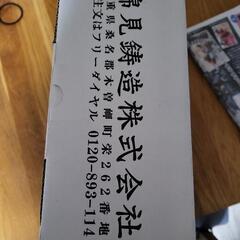 錦見鋳造株式会社
重県桑名郡木曽岬町栄262番地
注文はフリーダイヤル 0120-893-114